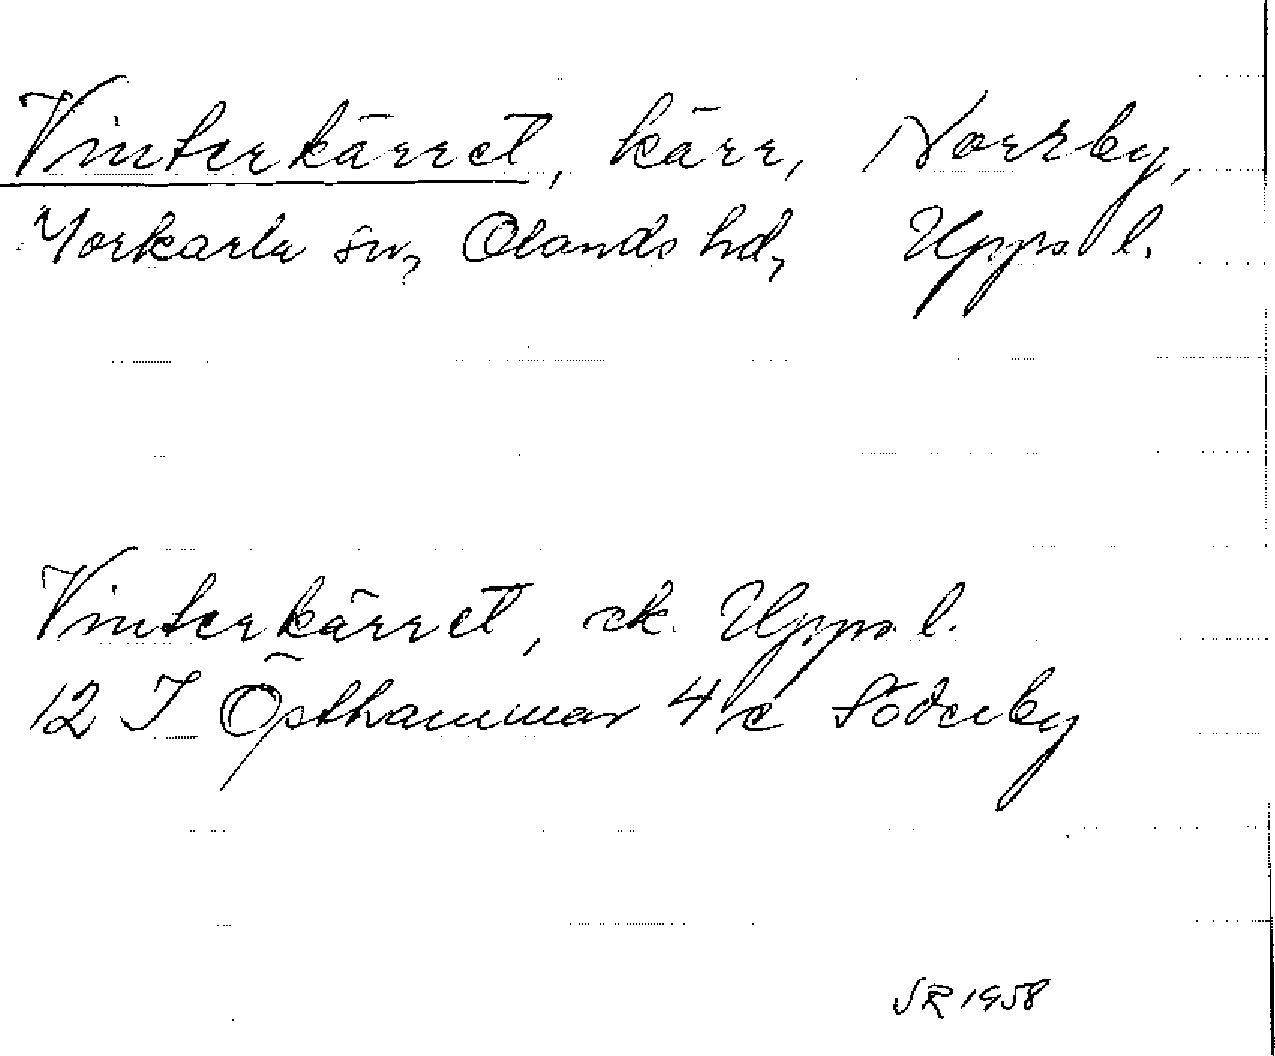 Vinterkärret, kärr, Norrby,
Morkarla sn, Olands hd, Upps. l.
Vinterkärret, ek. Upps. l.
12 I Östhammar 4 c Söderby
SR 1958